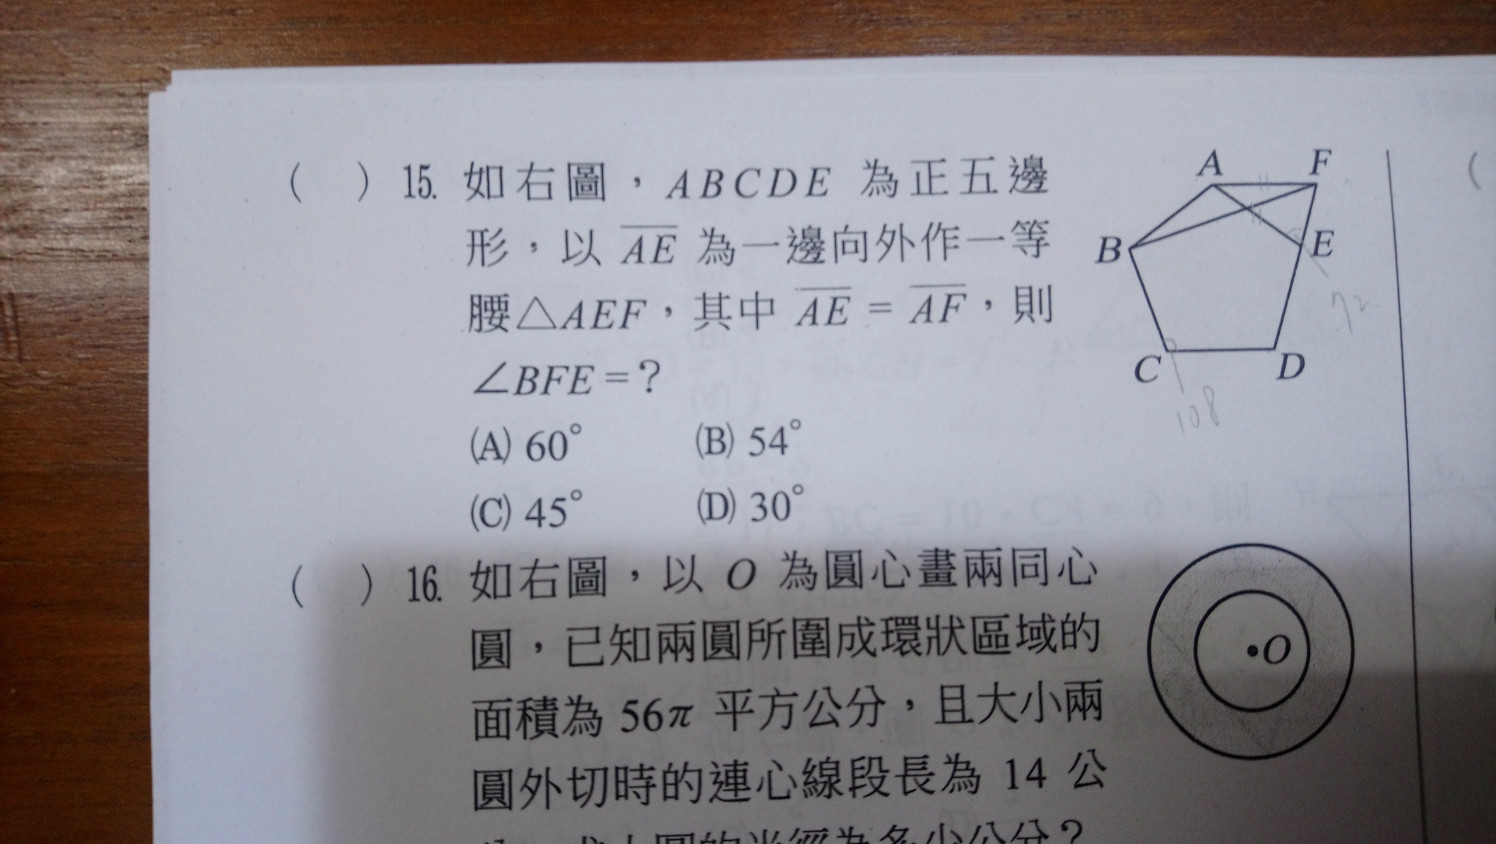 ( ) 15. 如右圖，ABCDE 為正五邊
形，以 AE 為一邊向外作一等
腰△AEF，其中 AE = AF，則
∠BFE = ?
(A) 60° (B) 54°
(C) 45° (D) 30°
A F
B E
C D
72
108
( ) 16. 如右圖，以 O 為圓心畫兩同心
圓，已知兩圓所圍成環狀區域的
面積為 56π 平方公分，且大小兩
圓外切時的連心線段長為 14 公
圓的半徑為多少公分？
O
(